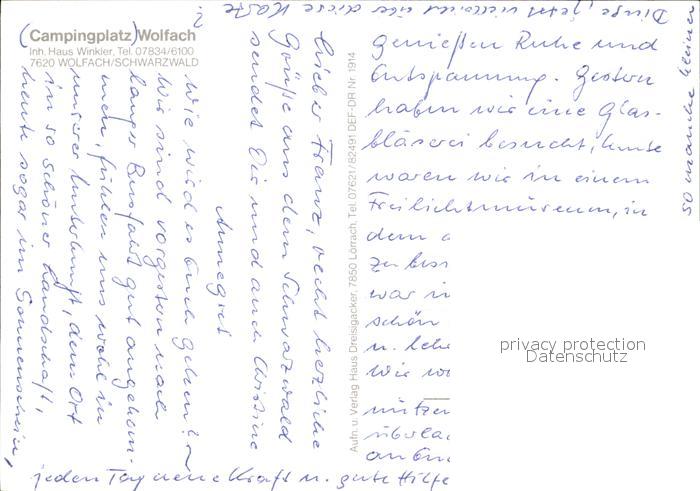 (Campingplatz) Wolfach
Inh. Haus Winkler, Tel. 07834/6100
7620 WOLFACH/SCHWARZWALD
Aufn. u. Verlag Haus Dreisigacker, 7850 Lörrach, Tel. 07621/82491 DEF-DR Nr. 1914
Lieber Franz, recht herzliche
Grüße aus dem Schwarzwald
sendet Dir und auch Christine
Annegret
Wie wird es Euch gehen?
Wir sind vorgestern nach
langer Busfahrt gut angekom-
men, fühlen uns wohl in
unserer Unterkunft, dem Ort
in so schöner Landschaft,
heute sogar im Sonnenschein,
genießen Ruhe und
Entspannung. Gestern
haben wir eine Glas-
bläserei besucht, heute
waren wir in einem
Freilichtmuseum, in
dem
zu
war
schön
u.
Wie
jeden Tag neue Kraft u. gute Hilfe
so manche kleinen
Dinge, jetzt vielleicht über diese Karte
?
privacy protection
Datenschutz